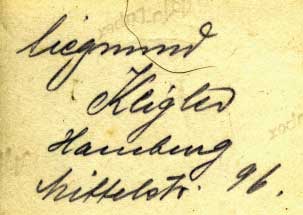 Siegmund
Kligler
Hamburg
Mittelstr. 96.